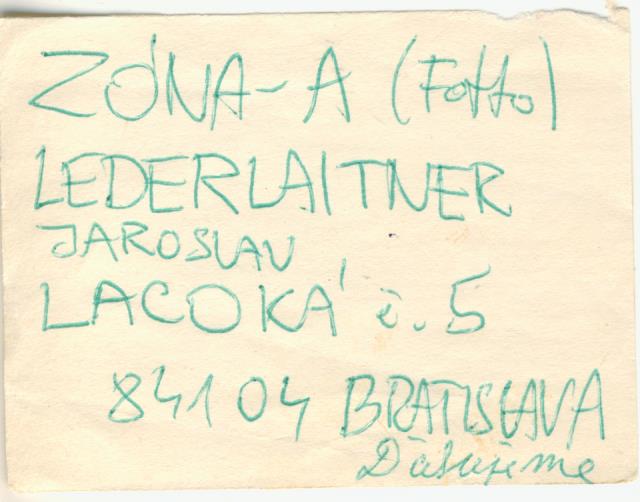 ZÓNA-A (Fotto)
LEDERLAITNER
JAROSLAV
LACOKÁ č. 5
841 04 BRATISLAVA
Ďakujeme